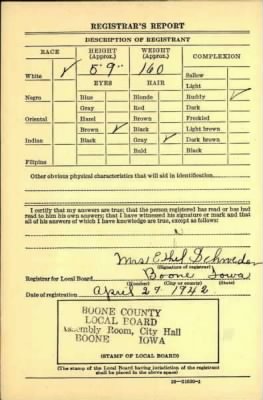 REGISTRAR'S REPORT
DESCRIPTION OF REGISTRANT
RACE HEIGHT (Approx.) WEIGHT (Approx.) COMPLEXION
5'9" 160 Sallow
White ✓ EYES HAIR Light
Negro Blue Blonde Ruddy ✓
Gray Red Dark
Oriental Hazel Brown Freckled
Brown ✓ Black Light brown
Indian Black Gray ✓ Dark brown
Bald Black
Filipino
Other obvious physical characteristics that will aid in identification
I certify that my answers are true; that the person registered has read or has had
read to him his own answers; that I have witnessed his signature or mark and that
all of his answers of which I have knowledge are true, except as follows:
Mrs Ethel Schroeder
(Signature of registrar)
Registrar for Local Board Boone Iowa
(Number) (City or county) (State)
Date of registration April 27 1942
BOONE COUNTY
LOCAL BOARD
Assembly Room, City Hall
BOONE IOWA
(STAMP OF LOCAL BOARD)
(The stamp of the Local Board having jurisdiction of the registrant
shall be placed in the above space)